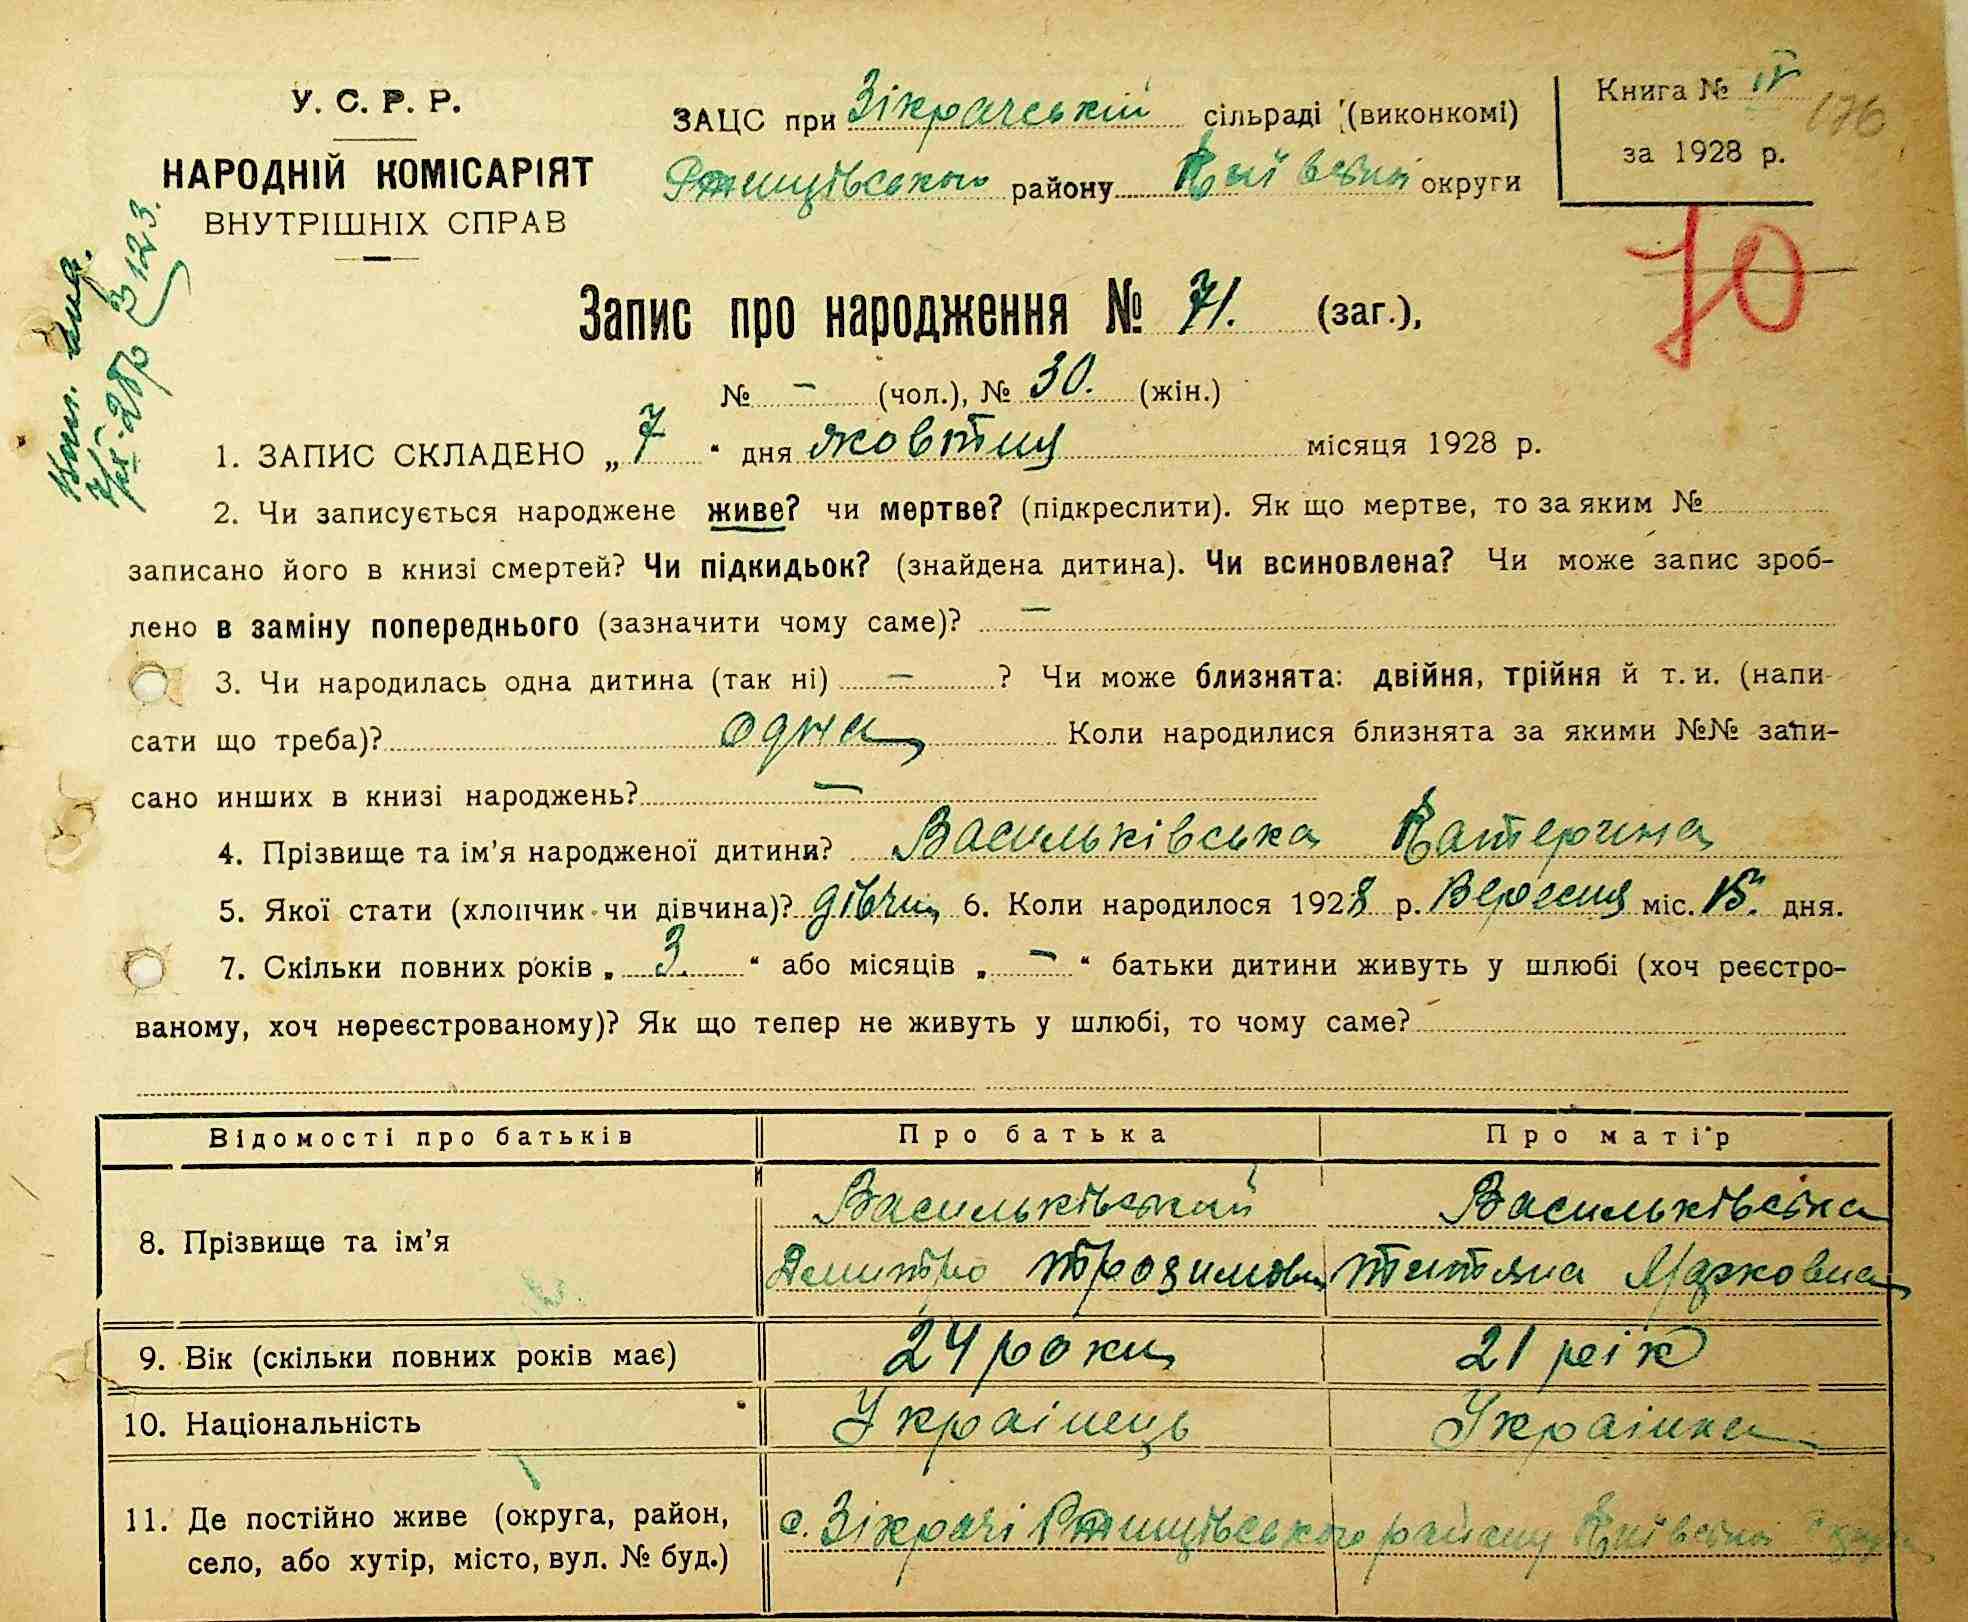 У. С. Р. Р.
НАРОДНІЙ КОМІСАРІЯТ
ВНУТРІШНІХ СПРАВ
ЗАЦС при Зікрачській сільраді (виконкомі)
Ржищівського району Київської округи
Книга № IV
176
за 1928 р.
70
3123.
Запис про народження № 71. (заг.),
№ – (чол.), № 30. (жін.)
1. ЗАПИС СКЛАДЕНО „ 7 “ дня жовтня місяця 1928 р.
2. Чи записується народжене живе? чи мертве? (підкреслити). Як що мертве, то за яким №
записано його в книзі смертей? Чи підкидьок? (знайдена дитина). Чи всиновлена? Чи може запис зроб-
лено в заміну попереднього (зазначити чому саме)? –
3. Чи народилась одна дитина (так ні) – ? Чи може близнята: двійня, трійня й т. и. (напи-
сати що треба)? одна Коли народилися близнята за якими №№ запи-
сано инших в книзі народжень? –
4. Прізвище та ім’я народженої дитини? Васильківська Катерина
5. Якої стати (хлопчик чи дівчина)? дівчи 6. Коли народилося 1928 р. Вересня міс. 15. дня.
7. Скільки повних років „ 3. “ або місяців „ – “ батьки дитини живуть у шлюбі (хоч реєстро-
ваному, хоч нереєстрованому)? Як що тепер не живуть у шлюбі, то чому саме?
Відомості про батьків Про батька Про матір
8. Прізвище та ім’я
Васильківський Васильківська
Дмитро Трохимови Тетяна Марковна
9. Вік (скільки повних років має) 24 роки 21 рік
10. Національність Українець Українка
11. Де постійно живе (округа, район,
село, або хутір, місто, вул. № буд.)
с. Зікрачі Ржищівського району Київської округи